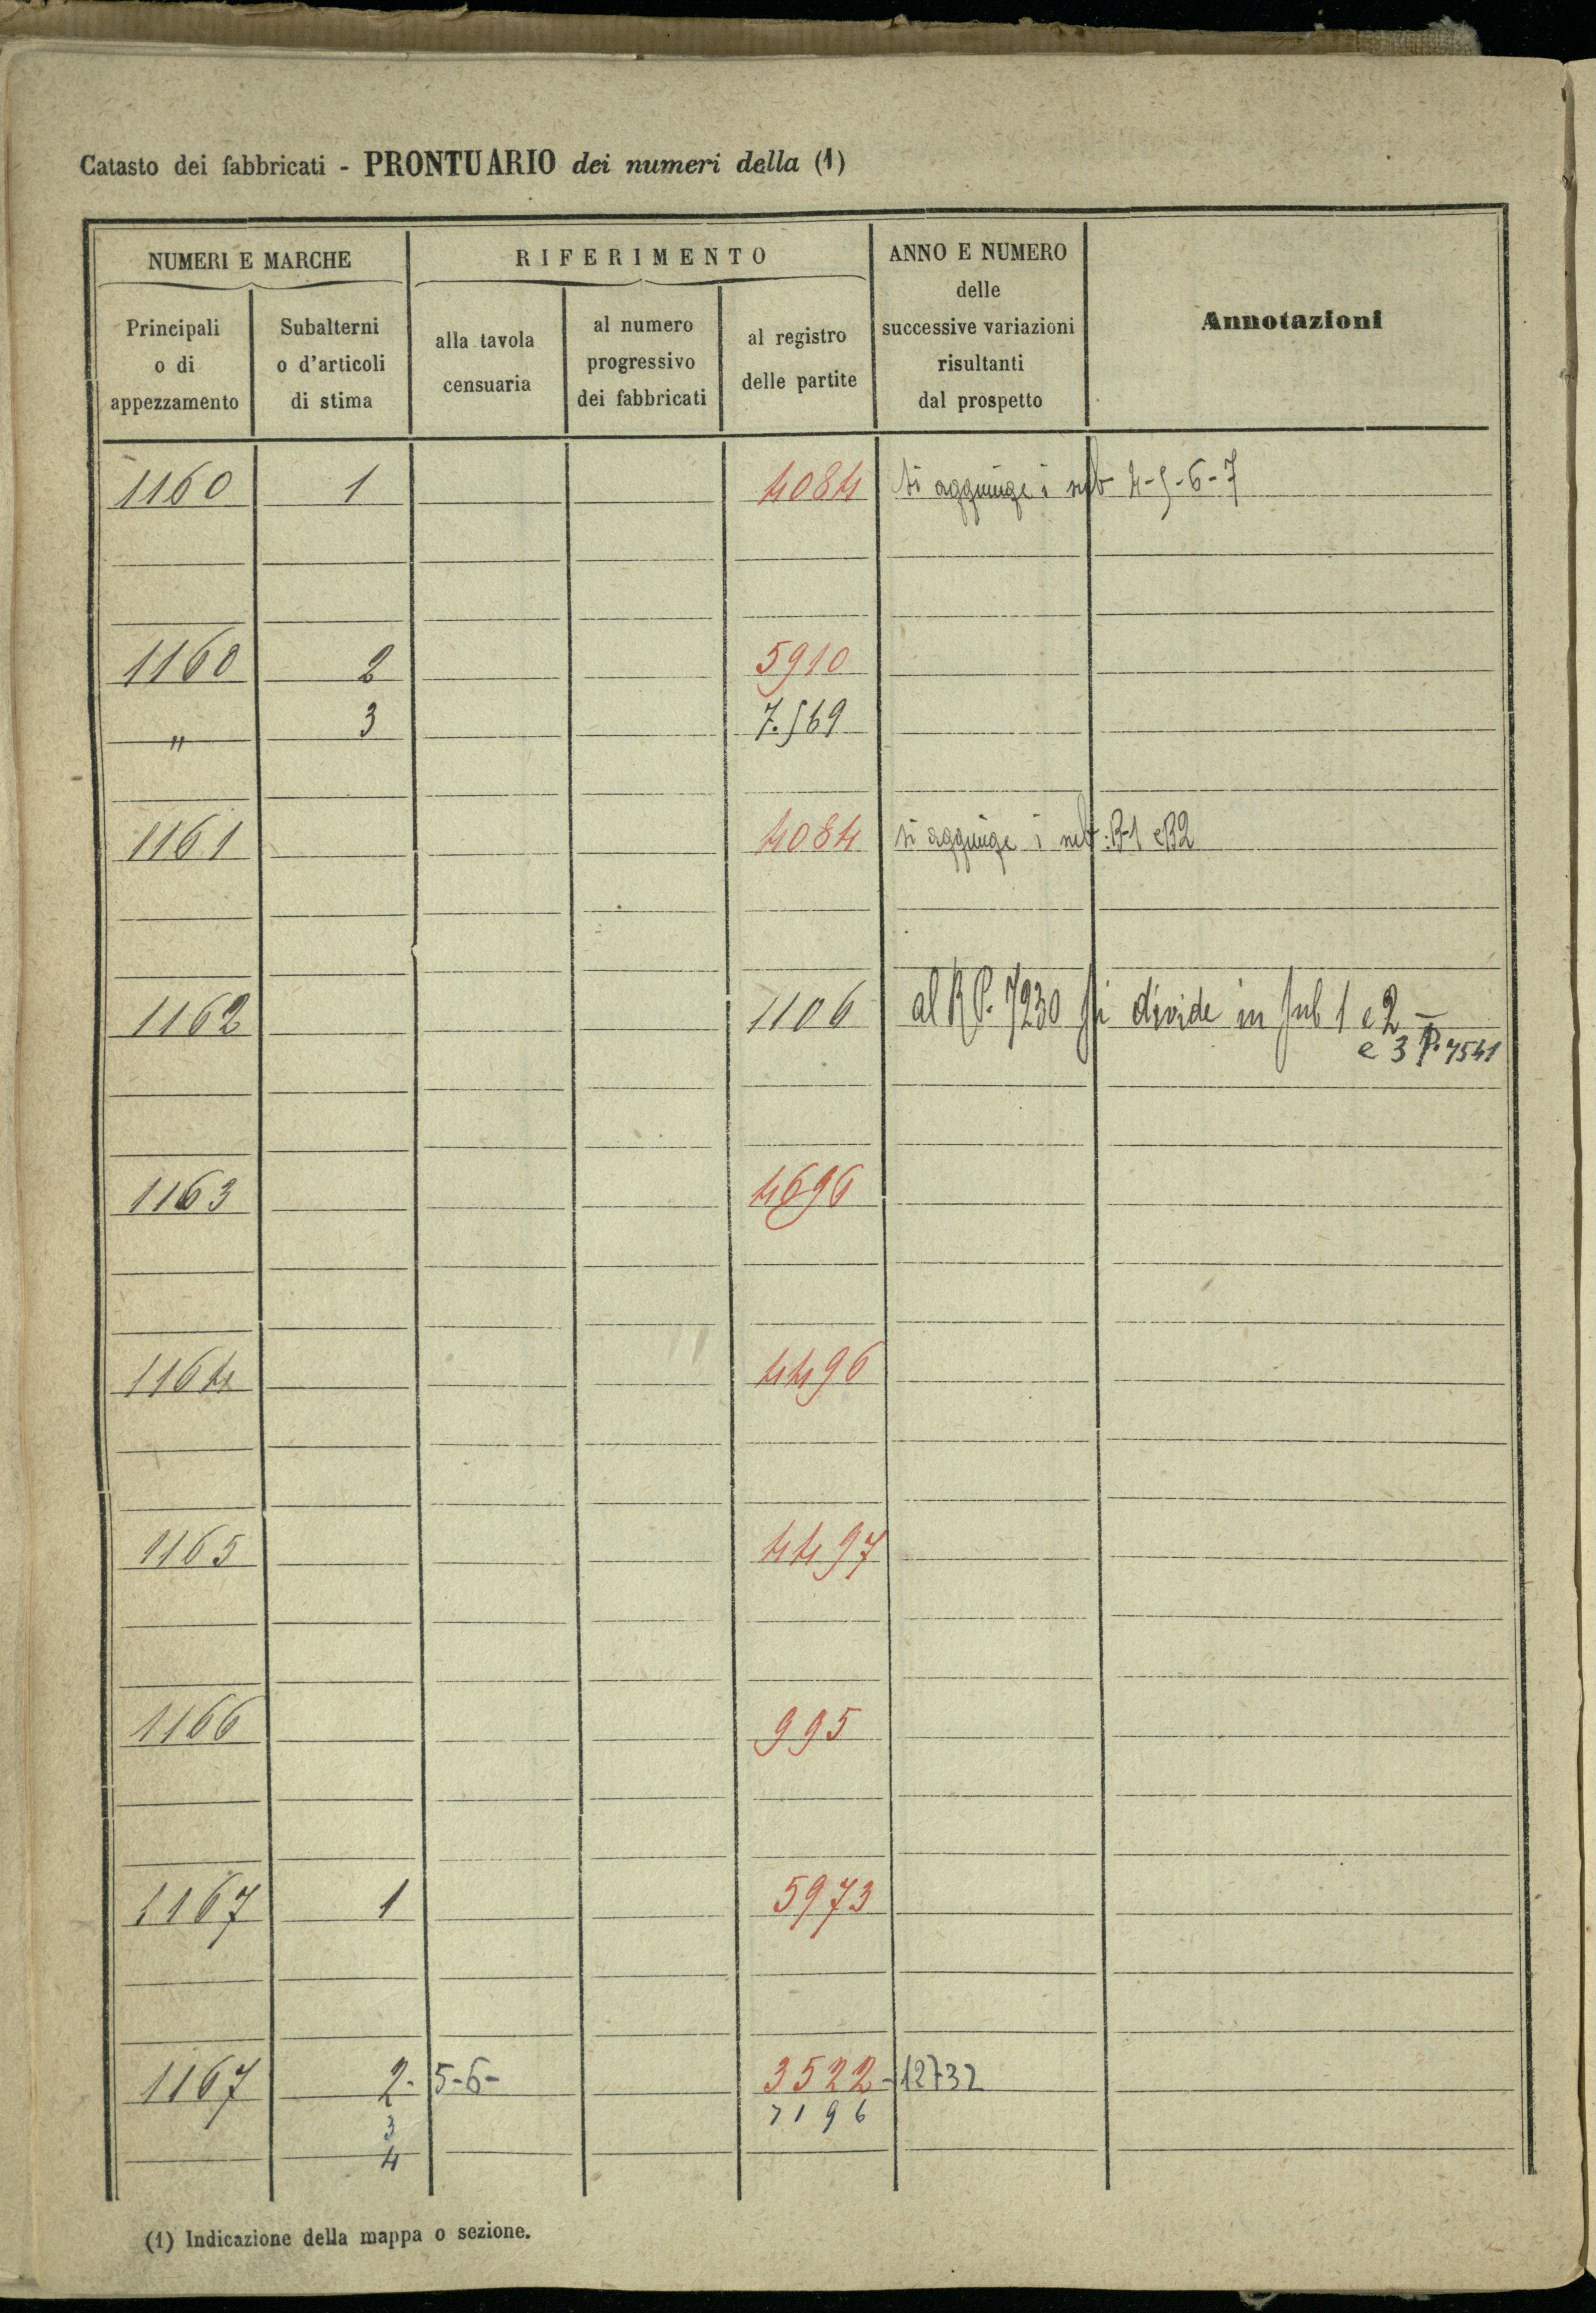 Catasto dei fabbricati - PRONTUARIO dei numeri della (1)
NUMERI E MARCHE
RIFERIMENTO
ANNO E NUMERO
delle
successive variazioni
risultanti
dal prospetto
Annotazioni
Principali
o di
appezzamento
Subalterni
o d'articoli
di stima
alla tavola
censuaria
al numero
progressivo
dei fabbricati
al registro
delle partite
1160 1 4084 si aggiunge i sub 4-5-6-7
1160 2 5910
" 3 7.569
1161 4084 si aggiunge i sub: B-1 e B2
1162 1106 al R P. 7230 si divide in sub 1 e 2 -
e 3 P. 7541
1163 4696
1164 4496
1165 4497
1166 995
1167 1 5973
1167 2- 5-6- 3522-12732
3 7196
4
(1) Indicazione della mappa o sezione.